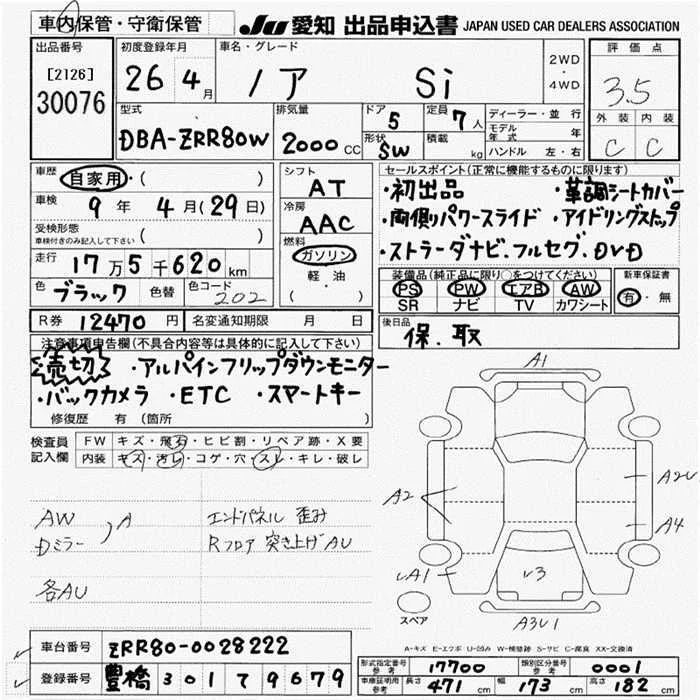 車内保管・守衛保管
JU 愛知 出品申込書 JAPAN USED CAR DEALERS ASSOCIATION
出品番号
[2126]
30076
初度登録年月
26 4月
車名・グレード
ノア Si
2WD
・
4WD
評価点
3.5
外装 内装
C C
型式
DBA-ZRR80W
排気量
2000 CC
ドア 5
形状 SW
定員 7人
積載 kg
ディーラー・並行
モデル年式 年
ハンドル 左・右
車歴 自家用・( )
車検 9年 4月(29日)
受検形態
車検付きのみ記入して下さい ( )
走行 17万5千620km
色 ブラック 色替 色コード 202
シフト
AT
冷房
AAC
燃料
ガソリン
軽・油
( )
セールスポイント(正常に機能するものに限ります)
・初出品 ・革調シートカバー
・両側パワースライド ・アイドリングストップ
・ストラーダナビ.フルセグ.DVD
装備品(純正品に限り○をつけてください)
PS PW エアB AW
SR ナビ TV カワシート
新車保証書
有・無
R券 12470円 名変通知期限 月 日
後日品
保.取
注意事項申告欄(不具合内容等は具体的に記入して下さい)
売切 ・アルパインフリップダウンモニター
・バックカメラ ・ETC ・スマートキー
修復歴 有(箇所
検査員記入欄
FW キズ・飛石・ヒビ割・リペア跡・X要
内装 キズ・汚レ・コゲ・穴・スレ・キレ・破レ
AW
Dミラー
A
各AU
エンドパネル 歪み
Rフロア 突き上げAU
A1
A2
A2U
A4
A1
V3
A3U1
スペア
A-キズ E-エクボ U-凹み W-補修跡 S-サビ C-腐食 XX-交換済
車台番号 ZRR80-0028222
登録番号 豊橋 301 79679
形式指定番号
参考 17700
類別区分番号
参考 0001
車庫証明用
参考 長さ 471cm 幅 173cm 高さ 182cm